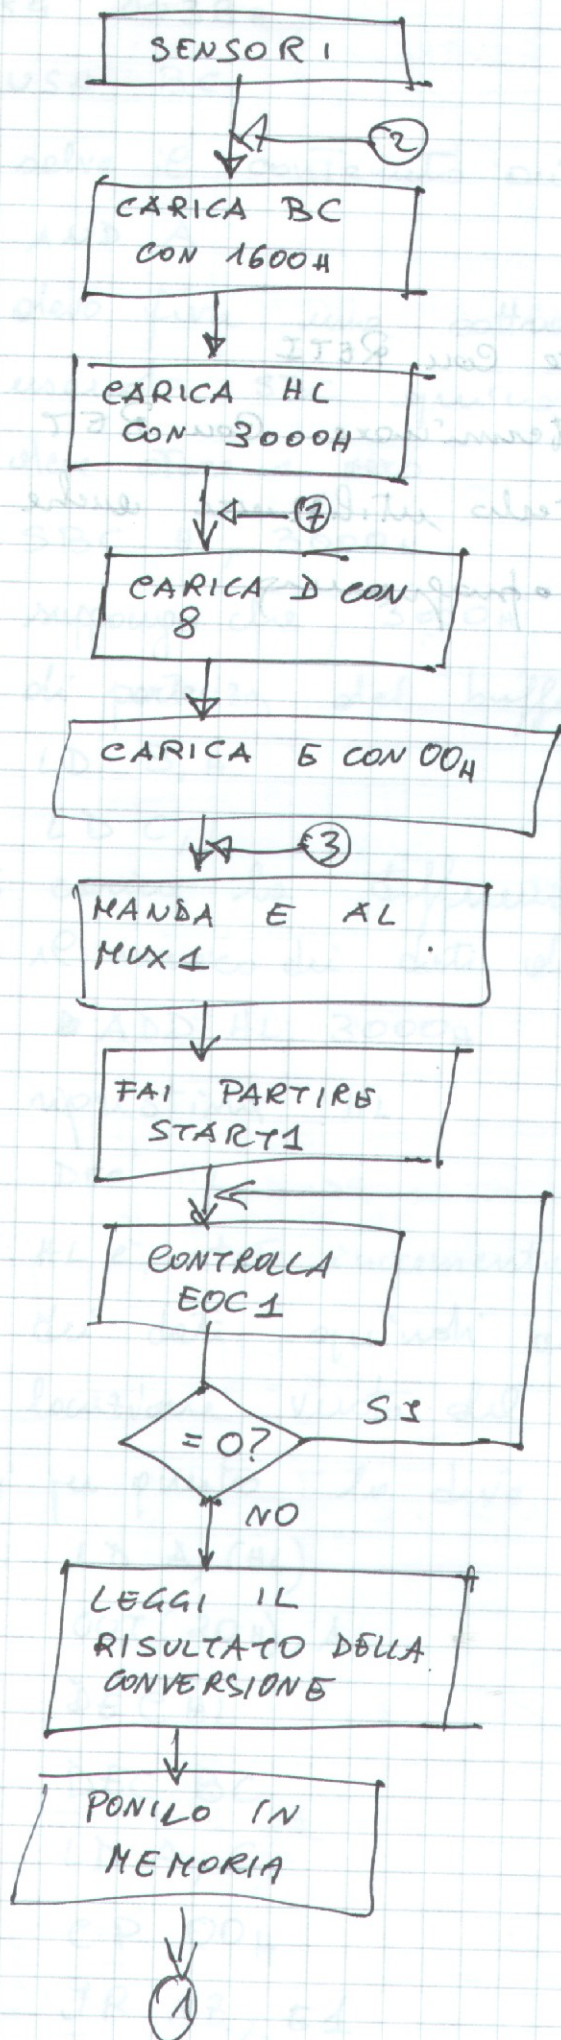 SENSORI
2
CARICA BC
CON 1600H
CARICA HL
CON 3000H
7
CARICA D CON
8
CARICA E CON 00H
3
MANDA E AL
MUX1
FAI PARTIRE
START1
CONTROLLA
EOC1
= 0?
SI
NO
LEGGI IL
RISULTATO DELLA
CONVERSIONE
PONILO IN
MEMORIA
1